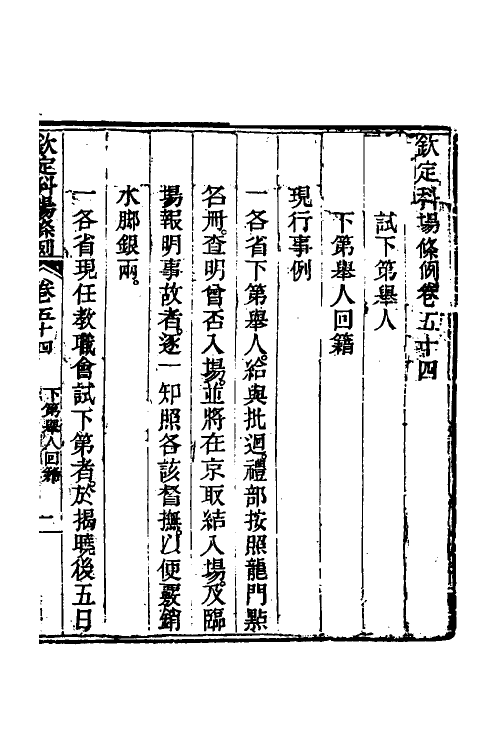 欽定科場條例卷五十四
試下第舉人
下第舉人回籍
現行事例
一各省下第舉人。給與批迴。禮部按照龍門點
名冊。查明曾否入場。並將在京取結入場。及臨
場報明事故者。逐一知照各該督撫。以便覈銷
水腳銀兩。
一各省現任教職會試下第者。於揭曉後五日
欽定科場條例 卷五十四 下第舉人回籍 一